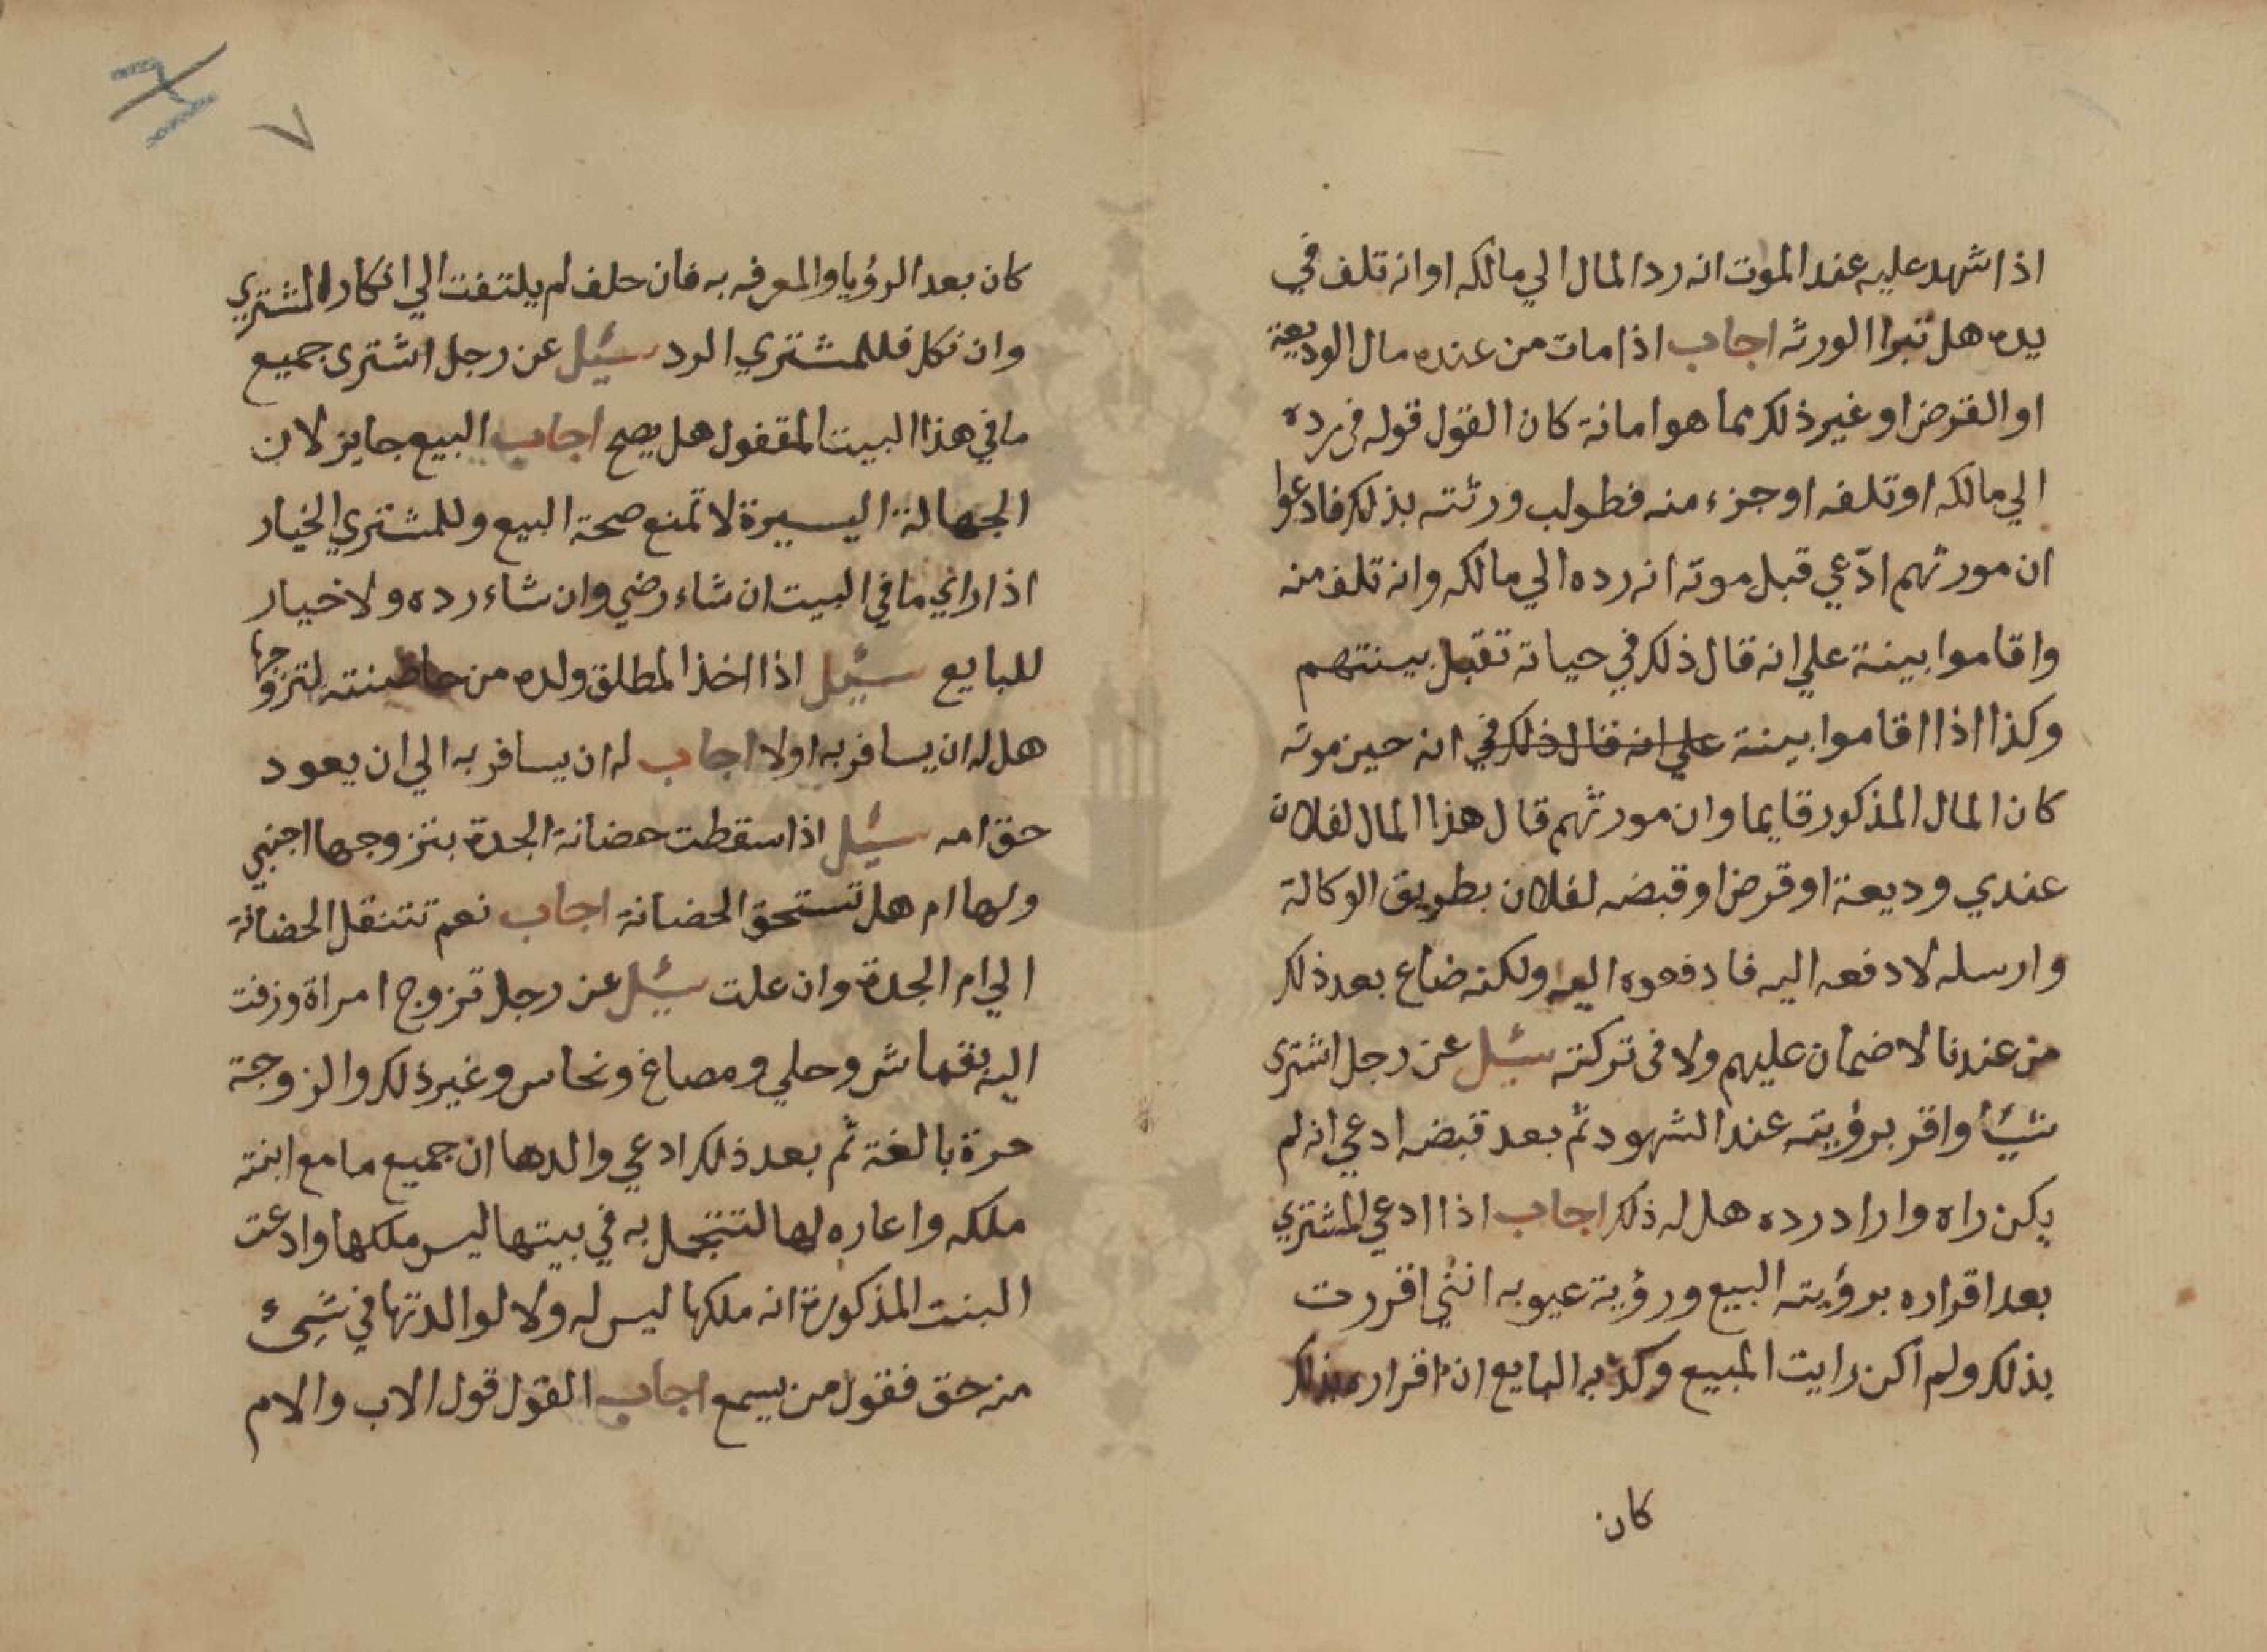 اذا شهد عليه عند الموت انه رد المال الي مالكه او انه تلف في
يده هل تبرا الورثه اجاب اذا مات من عنده مال الوديعة
او القرض او غير ذلك مما هو امانة كان القول قوله في رده
الي مالكه او تلفه او جزء منه فطولب ورثته بذلك فادعوا
ان مورثهم ادّعي قبل موته انه رده الي مالكه وانه تلف منه
واقاموا بينة علي انه قال ذلك في حياته تقبل بينتهم
وكذا اذا اقاموا بينة علي انه قال ذلك في انه حين موته
كان المال المذكور قايما وان مورثهم قال هذا المال لفلان
عندي وديعة او قرض او قبضه لفلان بطريق الوكالة
وارسله لادفعه اليه فادفعوه اليه ولكنه ضاع بعد ذلك
من عندنا لا ضمان عليهم ولا في تركته سئيل عن رجل اشترى
شيئا واقر برؤيته عند الشهود ثم بعد قبضه ادعي انه لم
يكن راه واراد رده هل له ذلك اجاب اذا ادعي المشتري
بعد اقراره برؤيته البيع ورؤية عيوبه انني اقررت
بذلك ولم اكن رايت المبيع وكذبه البايع ان اقراره بذلك
كان
٧
كان بعد الرؤيا والمعرفه به فان حلف لم يلتفت الي انكار المشتري
وان نكل فللمشتري الرد سئيل عن رجل اشترى جميع
ما في هذا البيت المقفول هل يصح اجاب البيع جايز لان
الجهالة اليسيرة لا تمنع صحة البيع وللمشتري الخيار
اذا راي ما في البيت ان شاء رضي وان شاء رده ولا خيار
للبايع سئيل اذا اخذ المطلق ولده من حاضنته لتزوجها
هل له ان يسافر به اولا اجاب له ان يسافر به الي ان يعود
حق امه سئيل اذا سقطت حضانة الجدة بتزوجها اجنبي
ولها ام هل تستحق الحضانة اجاب نعم تتنقل الحضانة
الي ام الجدة وان علت سئيل عن رجل تزوج امراة وزفت
اليه بقماش وحلي ومصاغ ونحاس وغير ذلك والزوجة
حرة بالغة ثم بعد ذلك ادعي والدها ان جميع ما مع ابنته
ملكه واعاره لها لتتجمل به في بيتها ليس ملكها وادعت
البنت المذكورة انه ملكها ليس له ولا لوالدتها في شيئ
منه حق فقول من يسمع اجاب القول قول الاب والام